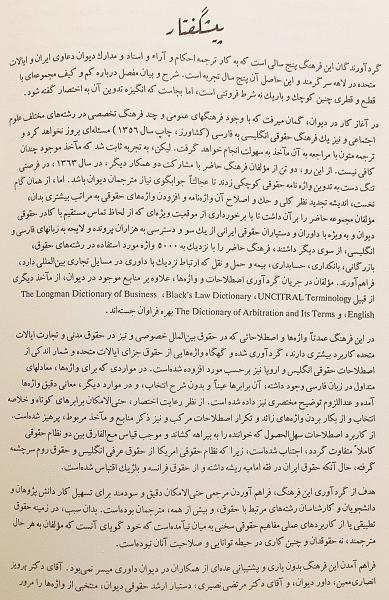 پیشگفتار
گردآورندگان این فرهنگ پنج سالی است که به کار ترجمه احکام و آراء و اسناد و مدارك دیوان دعاوی ایران و ایالات
متحده در لاهه سرگرمند و این حاصل آن پنج سال تجربه است. شرح و بیان مفصل درباره کم و کیف مجموعه‌ای با
قطع و قطری چنین کوچك و باریك نه شرط فروتنی است، اما بجاست که انگیزه تدوین آن به اختصار گفته شود.
در آغاز کار در دیوان، گمان میرفت که با وجود فرهنگهای عمومی و چند فرهنگ تخصصی در رشته‌های مختلف علوم
اجتماعی و نیز یك فرهنگ حقوقی انگلیسی به فارسی (کشاورز، چاپ سال ۱۳۵۶) مسئله‌ای بروز نخواهد کرد و
ترجمه متون با مراجعه به آن مآخذ به سهولت انجام خواهد گرفت. لیکن، به تجربه ثابت شد که مآخذ موجود چندان
کافی نیست. از این رو، دو تن از مؤلفان فرهنگ حاضر با مشارکت دو همکار دیگر، در سال ۱۳۶۳، در فرصتی
تنگ دست به تدوین واژه نامه حقوقی کوچکی زدند تا عجالتاً جوابگوی نیاز مترجمان دیوان باشد. اما، از همان گام
نخست، اندیشه تجدید نظر کلی و حك و اصلاح آن واژه‌نامه و افزودن واژه‌های حقوقی به مراتب بیشتری بدان،
مؤلفان مجموعه حاضر را بر آن داشت تا با برخورداری از موقعیت ویژه‌ای که از لحاظ تماس مستقیم با کادر حقوقی
دیوان و به ویژه با داوران و دستیاران حقوقی ایرانی از یك سو و دسترسی به هزاران پرونده و لایحه به زبانهای فارسی و
انگلیسی، از سوی دیگر داشتند، فرهنگ حاضر را با نزدیك به ۵۰۰۰ واژه مورد استفاده در رشته‌های حقوق،
بازرگانی، بانکداری، حسابداری، بیمه و حمل و نقل که ارتباط نزدیك با داوری در مسایل تجاری بین‌المللی دارد،
فراهم‌آورند. مؤلفان در جریان گردآوری اصطلاحات و واژه‌ها، علاوه بر منابع موجود در دیوان، از مآخذ دیگری
از قبیل UNCITRAL Terminology، Black's Law Dictionary، The Longman Dictionary of Business
English، و The Dictionary of Arbitration and Its Terms بهره فراوان جسته‌اند.
در این فرهنگ عمدتاً واژه‌ها و اصطلاحاتی که در حقوق بین‌الملل خصوصی و نیز در حقوق مدنی و تجارت ایالات
متحده کاربرد بیشتری دارند، گردآوری شده و گهگاه واژه‌هایی از حقوق جزای ایالات متحده و شمار اندکی از
اصطلاحات حقوقی انگلیس و اروپا نیز برحسب مورد افزوده شده‌است. در مواردی که برای واژه‌ها، معادلهای
متداول در زبان فارسی وجود داشته، آن برابرها عیناً و بدون شرح انتخاب، و در موارد دیگر، معانی دقیق واژه‌ها
آمده و عنداللزوم توضیح مختصری نیز داده شده است. از نظر رعایت اختصار، حتی‌الامکان برابرهای کوتاه و خلاصه
انتخاب و از بکار بردن واژه‌های زائد و تکرار اصطلاحات مرکب و نیز ذکر منابع و مآخذ مربوط، پرهیز شده‌است.
از کاربرد اصطلاحات سهل‌الحصول که خواننده را به بیراهه کشاند و موجب قیاس مع‌الفارق بین دو نظام حقوقی
کاملاً متفاوت گردد، اجتناب شده‌است، زیرا که نظام حقوقی امریکا از حقوق عرفی انگلیس و حقوق روم سرچشمه
گرفته، حال آنکه حقوق ایران در فقه امامیه ریشه داشته و از حقوق فرانسه و بلژیك اقتباس شده‌است.
هدف از گردآوری این فرهنگ، فراهم آوردن مرجعی حتی‌الامکان دقیق و سودمند برای تسهیل کار دانش پژوهان و
دانشجویان و کارشناسان رشته‌های مرتبط با حقوق، و بیش از همه، مترجمان بوده‌است. بدان سبب، در زمینه حقوق
تطبیقی یا از کاربردهای عملی مفاهیم حقوقی سخنی به میان نیآمده‌است که خود گویای آنست که مؤلفان به هر حال
مترجمند، نه حقوقدان و چنین کاری در حیطه توانایی و صلاحیت آنان نبوده‌است.
فراهم آمدن این فرهنگ بدون یاری و پشتیبانی عده‌ای از همکاران در دیوان داوری میسر نمی‌بود. آقای دکتر پرویز
انصاری‌معین، داور دیوان، و آقای دکتر مرتضی نصیری، دستیار ارشد حقوقی دیوان، منتخبی از واژه‌ها را مرور